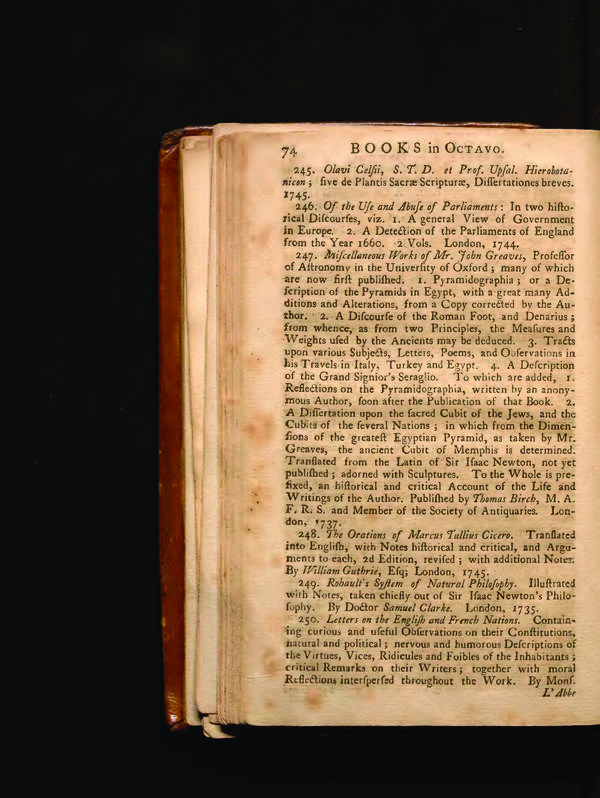 74 BOOKS in OCTAVO.
245. Olavi Celſii, S. T. D. et Prof. Upſal. Hierobota-
nicon ; ſive de Plantis Sacræ Scripturæ, Diſſertationes breves.
1745.
246. Of the Uſe and Abuſe of Parliaments : In two hiſto-
rical Diſcourſes, viz. 1. A general View of Government
in Europe. 2. A Detection of the Parliaments of England
from the Year 1660. 2 Vols. London, 1744.
247. Miſcellaneous Works of Mr. John Greaves, Profeſſor
of Aſtronomy in the Univerſity of Oxford ; many of which
are now firſt publiſhed. 1. Pyramidographia ; or a De-
ſcription of the Pyramids in Egypt, with a great many Ad-
ditions and Alterations, from a Copy corrected by the Au-
thor. 2. A Diſcourſe of the Roman Foot, and Denarius ;
from whence, as from two Principles, the Meaſures and
Weights uſed by the Ancients may be deduced. 3. Tracts
upon various Subjects, Letters, Poems, and Obſervations in
his Travels in Italy, Turkey and Egypt. 4. A Deſcription
of the Grand Signior's Seraglio. To which are added, 1.
Reflections on the Pyramidographia, written by an anony-
mous Author, ſoon after the Publication of that Book. 2.
A Diſſertation upon the ſacred Cubit of the Jews, and the
Cubits of the ſeveral Nations ; in which from the Dimen-
ſions of the greateſt Egyptian Pyramid, as taken by Mr.
Greaves, the ancient Cubit of Memphis is determined.
Tranſlated from the Latin of Sir Iſaac Newton, not yet
publiſhed ; adorned with Sculptures. To the Whole is pre-
fixed, an hiſtorical and critical Account of the Life and
Writings of the Author. Publiſhed by Thomas Birch, M. A.
F. R. S. and Member of the Society of Antiquaries. Lon-
don, 1737.
248. The Orations of Marcus Tullius Cicero. Tranſlated
into Engliſh, with Notes hiſtorical and critical, and Argu-
ments to each, 2d Edition, reviſed ; with additional Notes.
By William Guthrie, Eſq; London, 1745.
249. Rohault's Syſtem of Natural Philoſophy. Illuſtrated
with Notes, taken chiefly out of Sir Iſaac Newton's Philo-
ſophy. By Doctor Samuel Clarke. London, 1735.
250. Letters on the Engliſh and French Nations. Contain-
ing curious and uſeful Obſervations on their Conſtitutions,
natural and political ; nervous and humorous Deſcriptions of
the Virtues, Vices, Ridicules and Foibles of the Inhabitants ;
critical Remarks on their Writers ; together with moral
Reflections interſperſed throughout the Work. By Monſ.
L'Abbe